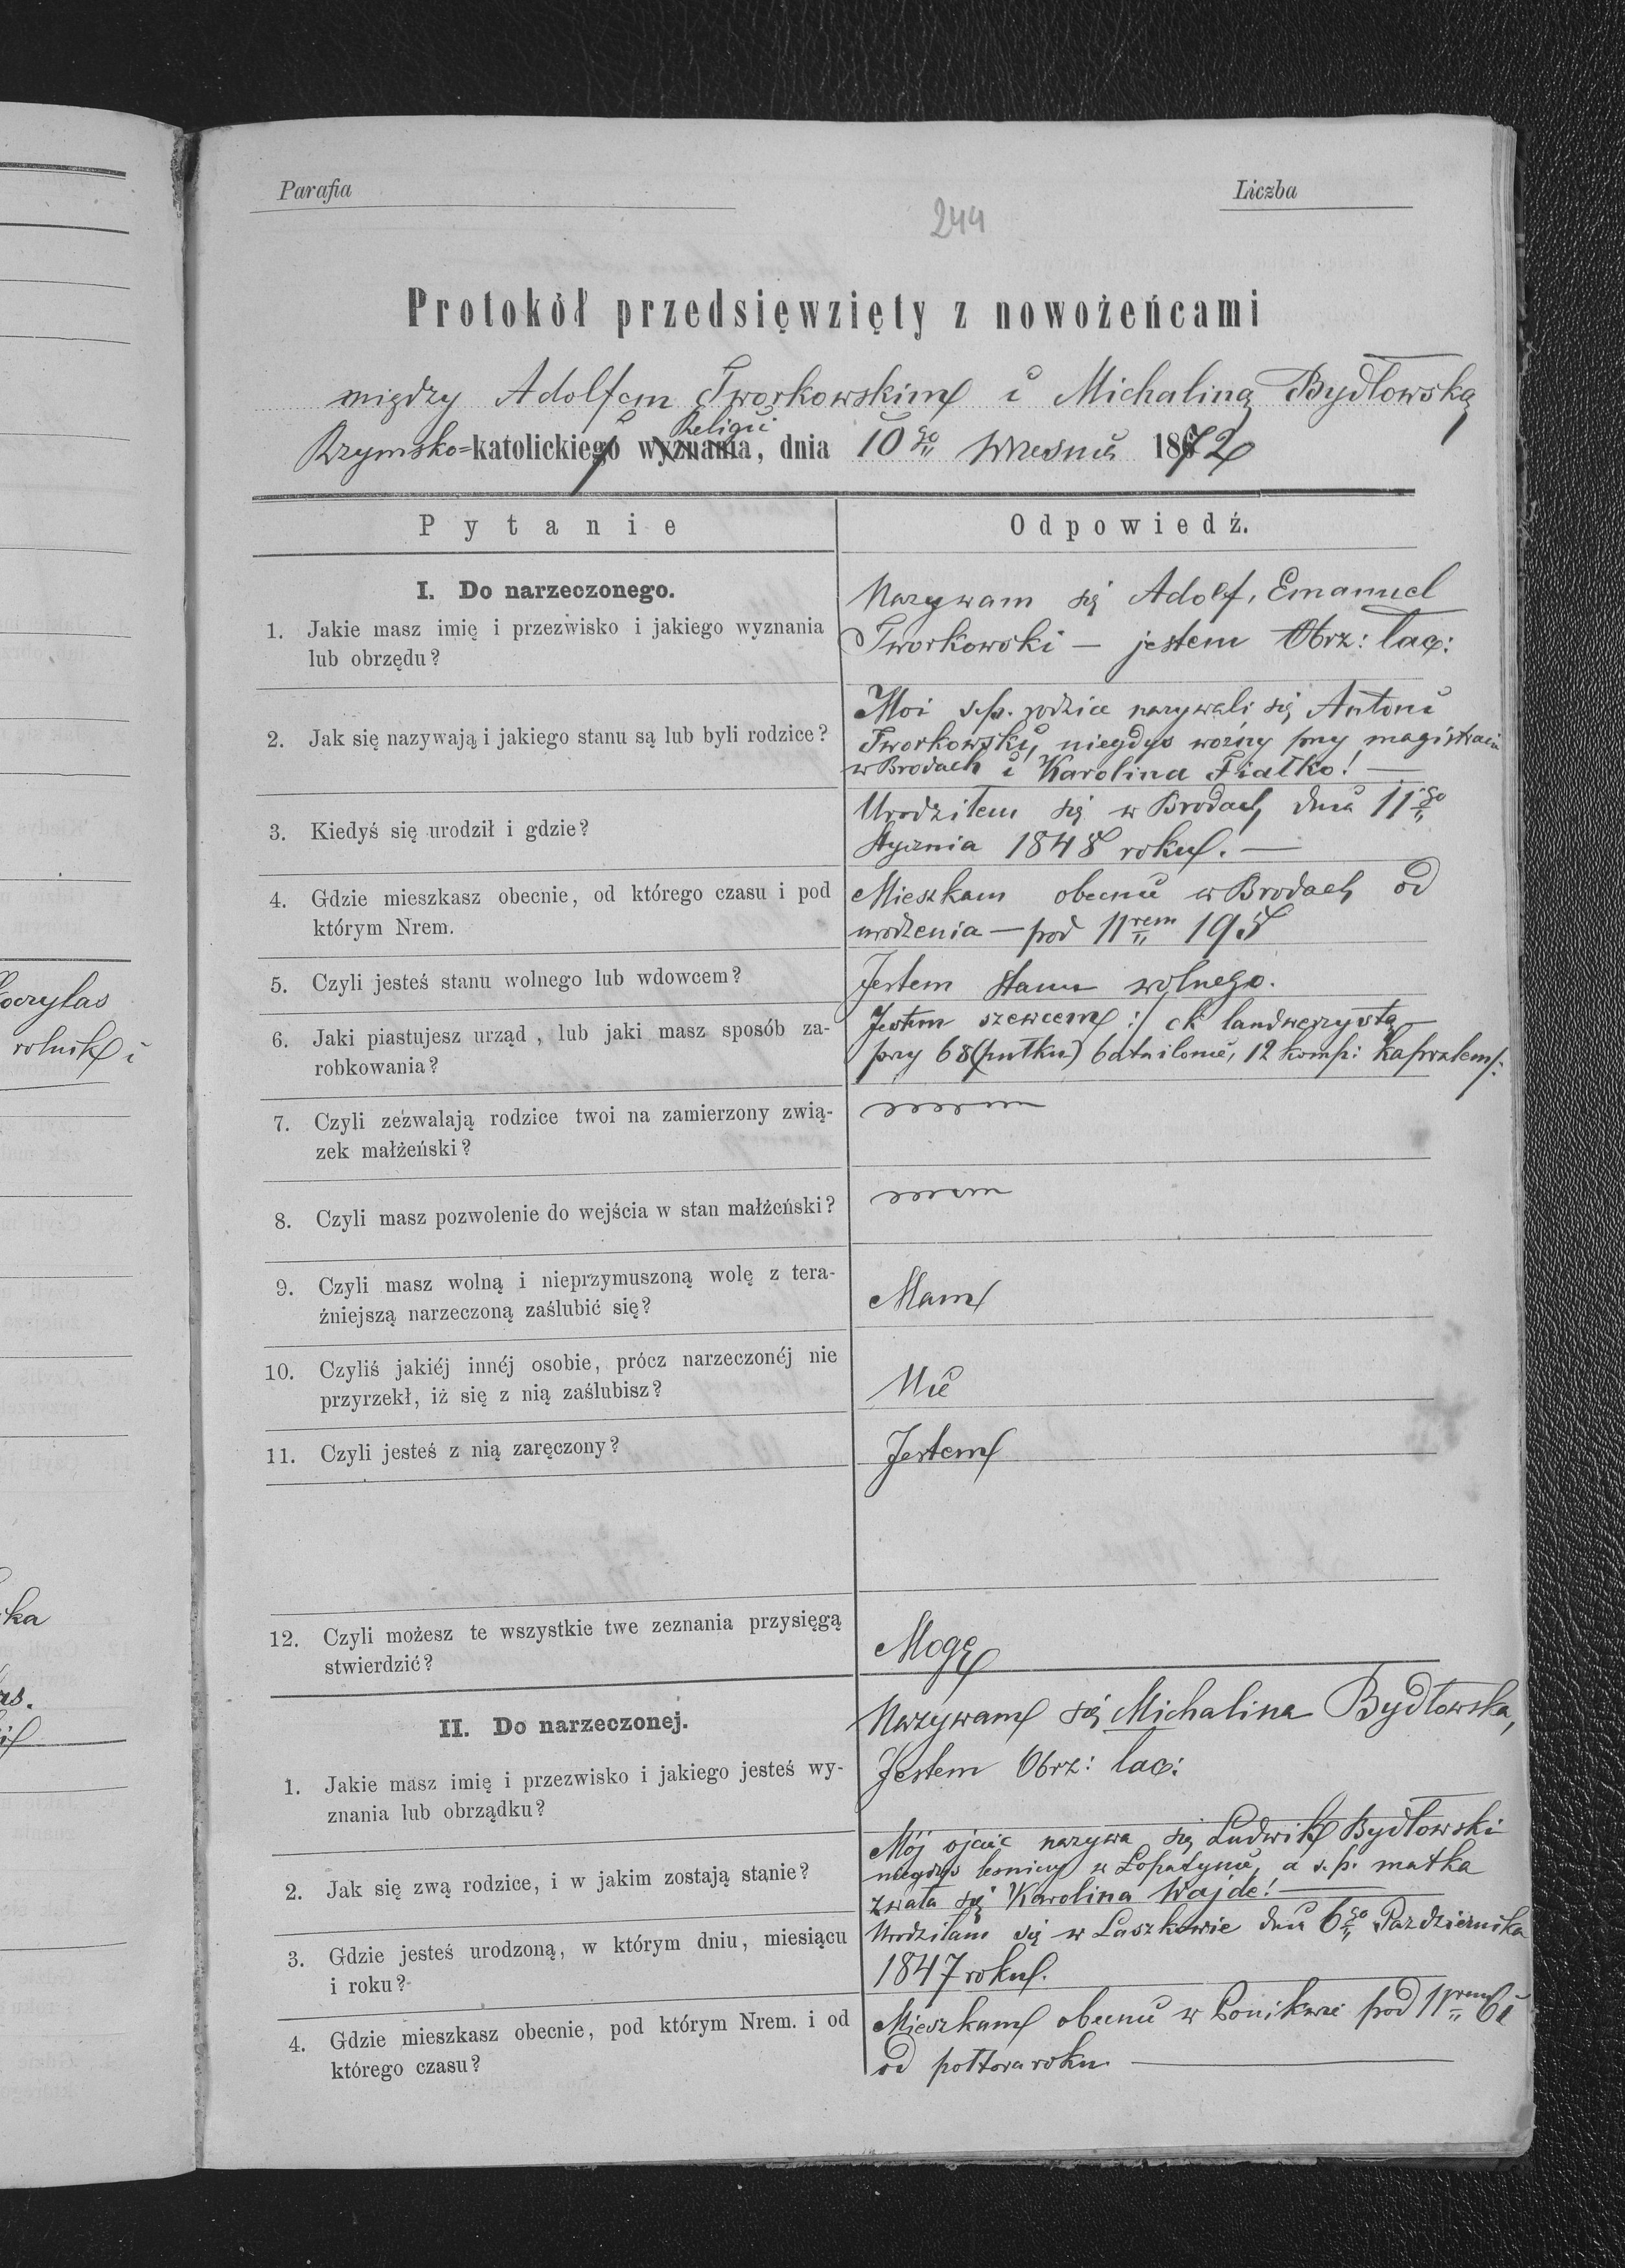 Parafia
Liczba
244
Protokół przedsięwzięty z nowożeńcami
między Adolfem Tworkowskim i Michaliną Bydłowską
Religii
Rzymsko=katolickiego wyznania, dnia 10go Wrzesnia 1872
Pytanie
Odpowiedź.
I. Do narzeczonego.
1. Jakie masz imię i przezwisko i jakiego wyznania
lub obrzędu?
Nazywam się Adolf, Emanuel
Tworkowski — jestem Obrz: łac:
2. Jak się nazywają i jakiego stanu są lub byli rodzice?
Moi s.p. rodzice nazywali się Antoni
Tworkowski, niegdys woźny przy magistracie
w Brodach i Karolina Fiałko! —
3. Kiedyś się urodził i gdzie?
Urodziłem się w Brodach, dnia 11go
Stycznia 1848 roku. —
4. Gdzie mieszkasz obecnie, od którego czasu i pod
którym Nrem.
Mieszkam obecnie w Brodach od
urodzenia — pod Nrem
5. Czyli jesteś stanu wolnego lub wdowcem?
Jestem stanu wolnego.
6. Jaki piastujesz urząd , lub jaki masz sposób za-
robkowania?
Jestem szewcem :/ ck landwerzystą
przy 68 (pułku) batailonie, 12 komp: kapralem/:
7. Czyli zezwalają rodzice twoi na zamierzony zwią-
zek małżeński?
8. Czyli masz pozwolenie do wejścia w stan małżeński?
9. Czyli masz wolną i nieprzymuszoną wolę z tera-
źniejszą narzeczoną zaślubić się?
Mam
10. Czyliś jakiéj innéj osobie, prócz narzeczonéj nie
przyrzekł, iż się z nią zaślubisz?
Nie
11. Czyli jesteś z nią zaręczony?
Jestem
12. Czyli możesz te wszystkie twe zeznania przysięgą
stwierdzić?
Mogę
II. Do narzeczonej.
1. Jakie masz imię i przezwisko i jakiego jesteś wy-
znania lub obrządku?
Nazywam się Michalina Bydłowska,
Jestem Obrz: łac:
2. Jak się zwą rodzice, i w jakim zostają stanie?
Mój ojciec nazywa się Ludwik Bydłowski
niegdys lesniczy w Łopatynie, a s.p. matka
zwała się Karolina Wajde! —
3. Gdzie jesteś urodzoną, w którym dniu, miesiącu
i roku?
Urodziłam się w Laszkowie dnia 6go Pazdziernika
1847 roku.
4. Gdzie mieszkasz obecnie, pod którym Nrem. i od
którego czasu?
Mieszkam obecnie w Ponikwie pod Nrem
od półtora roku. —
oczylas
rolnik i
ka